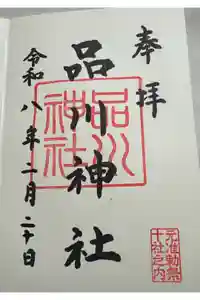 奉拝
品川神社
品川神社
令和八年一月二十日
元准勅祭
十社之内